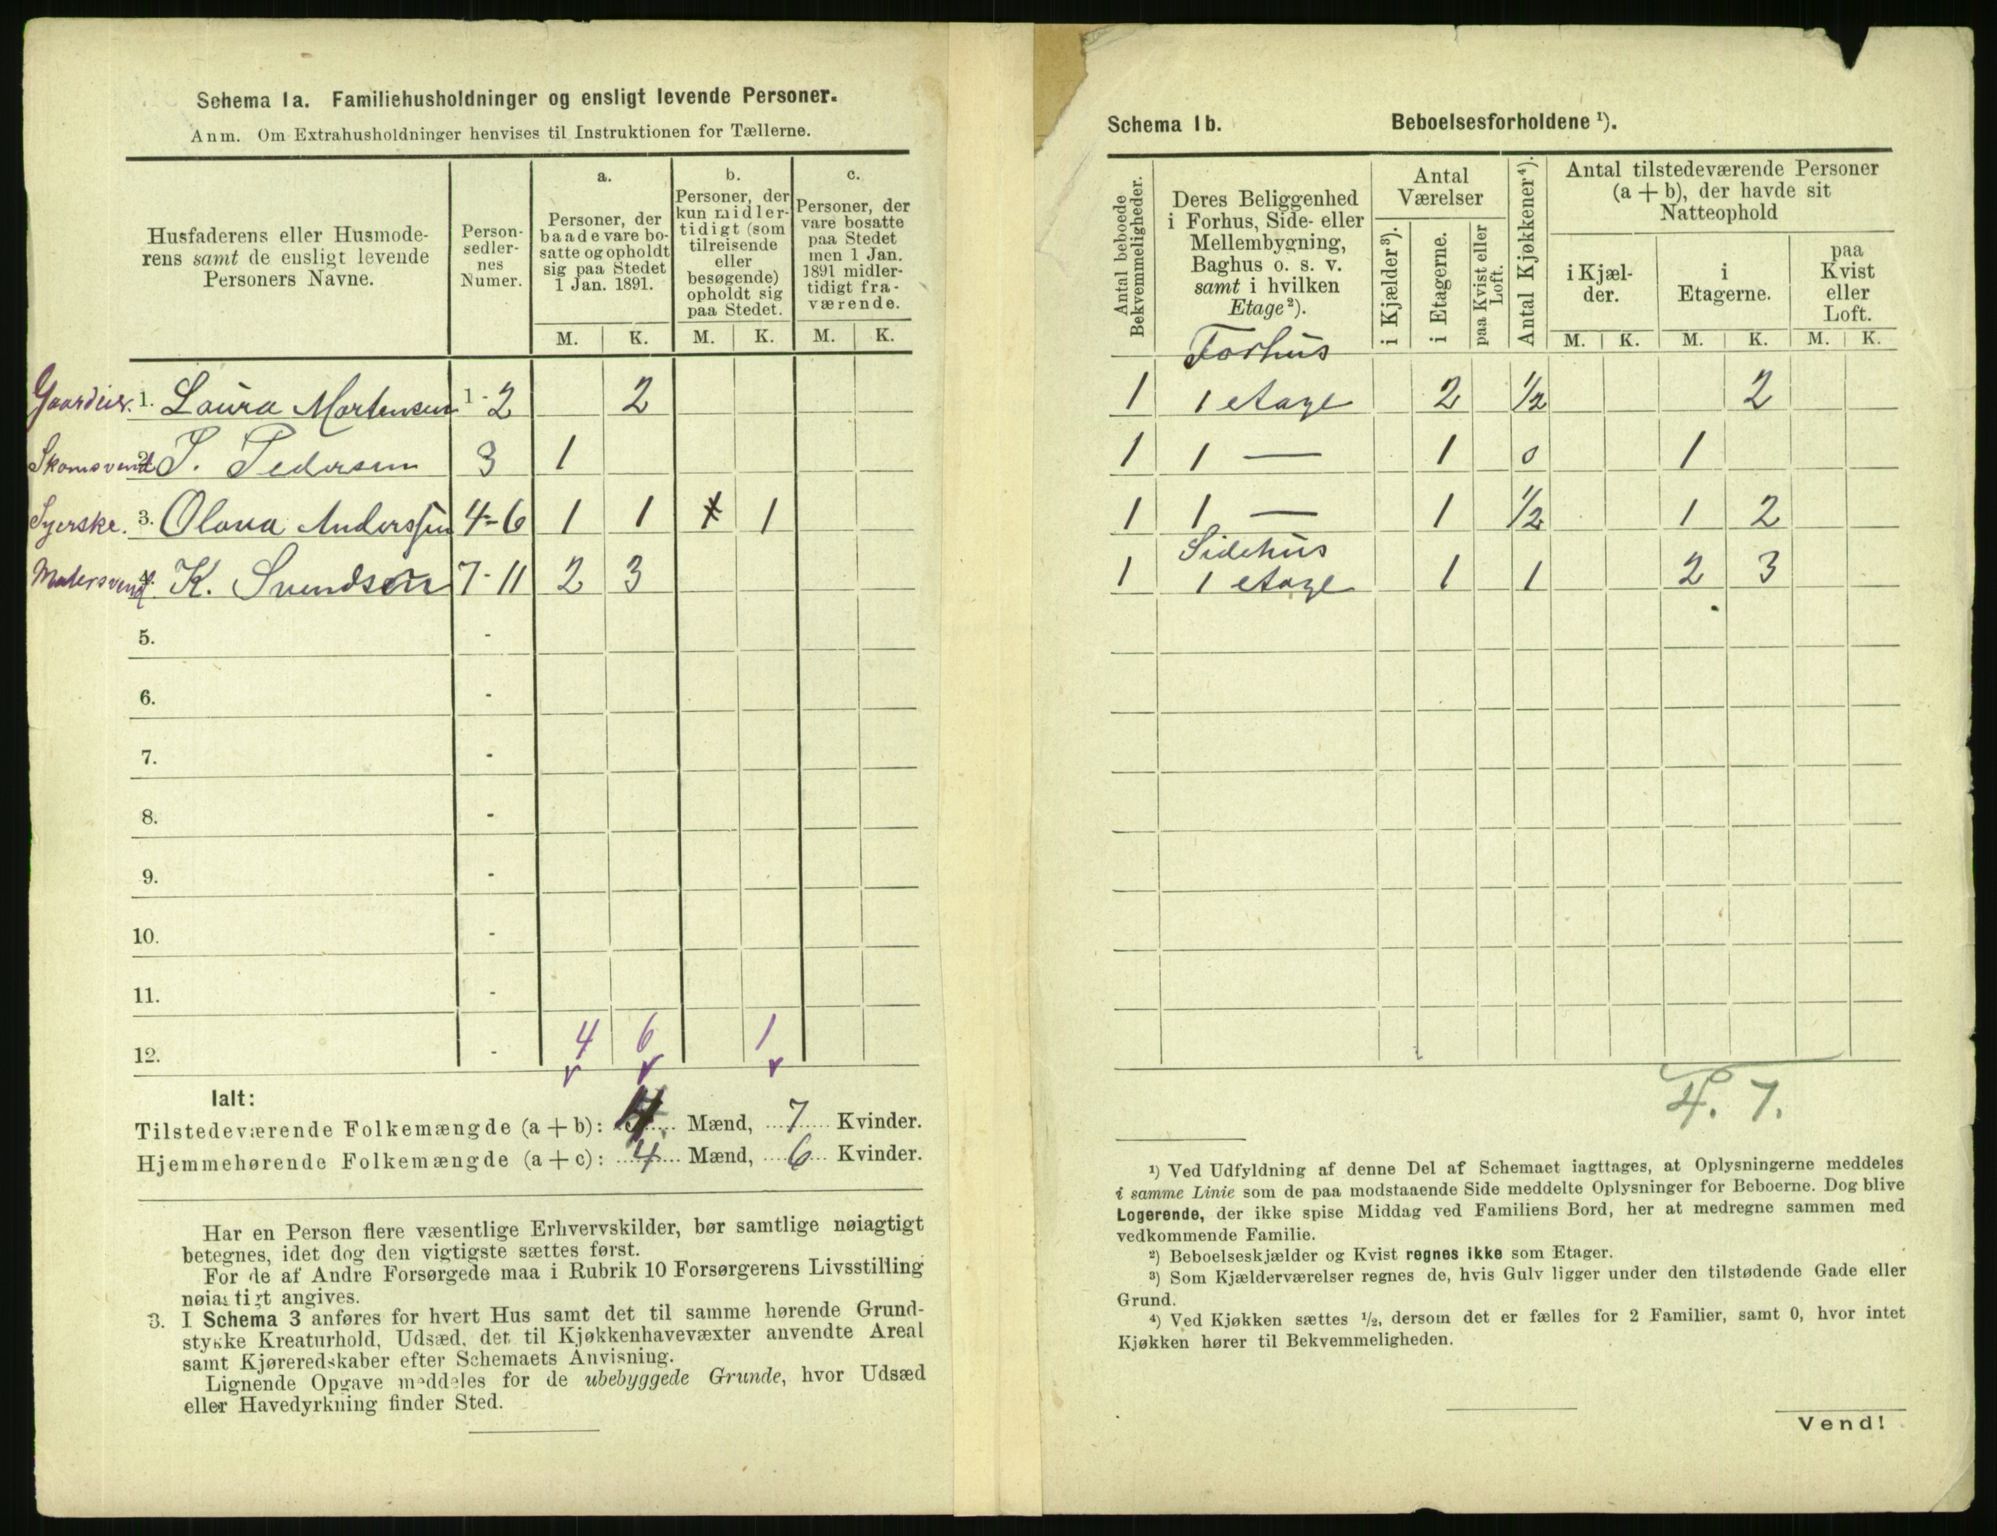 Schema 1a. Familiehusholdninger og ensligt levende Personer.
Anm. Om Extrahusholdninger henvises til Instruktionen for Tællerne.
Husfaderens eller Husmode-
rens samt de ensligt levende
Personers Navne.
Person-
sedler-
nes
Numer.
a.
Personer, der
baade vare bo-
satte og opholdt
sig paa Stedet
1 Jan. 1891.
b.
Personer, der
kun midler-
tidigt (som
tilreisende
eller
besøgende)
opholdt sig
paa Stedet.
c.
Personer, der
vare bosatte
paa Stedet
men 1 Jan.
1891 midler-
tidigt fra-
værende.
M. K. M. K. M. K.
Gaardeier. 1. Laura Mortensen 1-2 2
Skomsvend 2. S. Pedersen 3 1
Syerske. 3. Olava Anderssen 4-6 1 1 1 1
Malersvend 4. K. Svendsen 7-11 2 3
5. -
6. -
7. -
8. -
9. -
10. -
11. -
12. - 4 6 1
Ialt:
Tilstedeværende Folkemængde (a + b): 4 Mænd, 7 Kvinder.
Hjemmehørende Folkemængde (a + c): 4 Mænd, 6 Kvinder.
Har en Person flere væsentlige Erhvervskilder, bør samtlige nøiagtigt
betegnes, idet dog den vigtigste sættes først.
For de af Andre Forsørgede maa i Rubrik 10 Forsørgerens Livsstilling
nøiagtigt angives.
3. I Schema 3 anføres for hvert Hus samt det til samme hørende Grund-
stykke Kreaturhold, Udsæd, det til Kjøkkenhavevæxter anvendte Areal
samt Kjøreredskaber efter Schemaets Anvisning.
Lignende Opgave meddeles for de ubebyggede Grunde, hvor Udsæd
eller Havedyrkning finder Sted.
Schema 1b. Beboelsesforholdene ¹).
Antal beboede
Bekvemmeligheder.
Deres Beliggenhed
i Forhus, Side- eller
Mellembygning,
Baghus o. s. v.
samt i hvilken
Etage²).
Antal
Værelser
i Kjælder³).
i Etagerne.
paa Kvist eller
Loft.
Antal Kjøkkener⁴).
Antal tilstedeværende Personer
(a + b), der havde sit
Natteophold
i Kjæl-
der.
i
Etagerne.
paa
Kvist
eller
Loft.
M. K. M. K. M. K.
Forhus
1 1 etage 2 ½ 2
1 1 — 1 0 1
1 1 — 1 ½ 1 2
Sidehus
1 1 etage 1 1 2 3
4. 7.
¹) Ved Udfyldning af denne Del af Schemaet iagttages, at Oplysningerne meddeles
i samme Linie som de paa modstaaende Side meddelte Oplysninger for Beboerne. Dog blive
Logerende, der ikke spise Middag ved Familiens Bord, her at medregne sammen med
vedkommende Familie.
²) Beboelseskjælder og Kvist regnes ikke som Etager.
³) Som Kjælderværelser regnes de, hvis Gulv ligger under den tilstødende Gade eller
Grund.
⁴) Ved Kjøkken sættes ½, dersom det er fælles for 2 Familier, samt 0, hvor intet
Kjøkken hører til Bekvemmeligheden.
Vend!